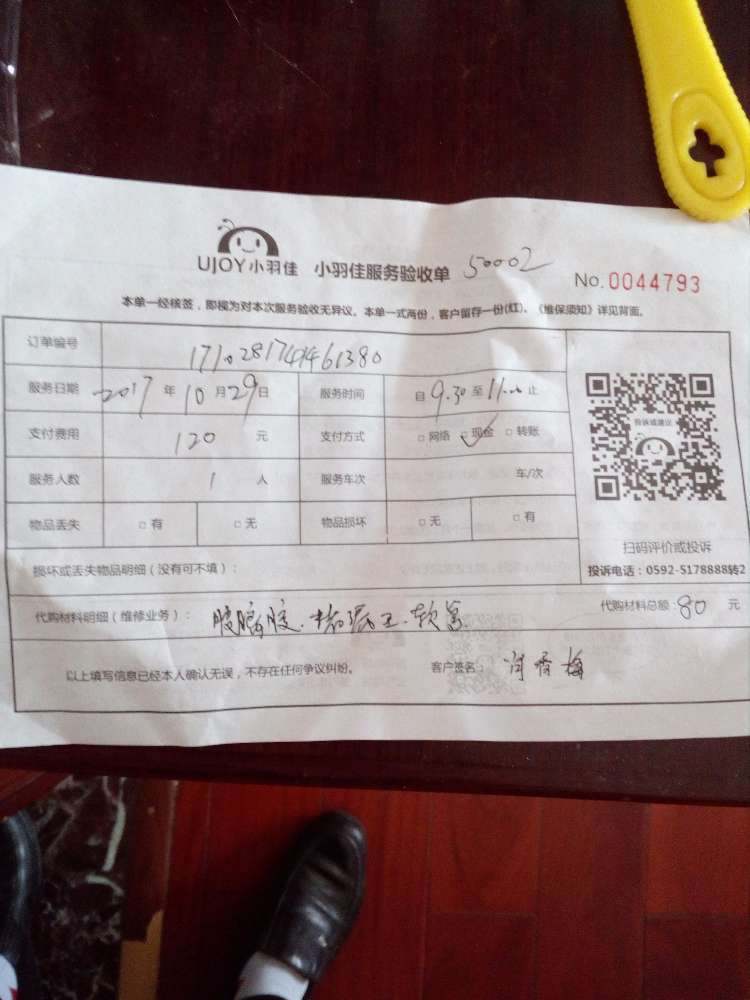 UJOY小羽佳 小羽佳服务验收单 50002
No.0044793
本单一经核签，即视为对本次服务验收无异议。本单一式两份，客户留存一份(红)。《维保须知》详见背面。
订单编号
服务日期 2017 年 10 月 29 日 服务时间 自 9.30 至 11.00 止
投诉或建议
支付费用 120 元 支付方式 □网络 □现金 □转账
服务人数 1 人 服务车次 车/次
物品丢失 □有 □无 物品损坏 □无 □有
扫码评价或投诉
损坏或丢失物品明细（没有可不填）：
投诉电话：0592-5178888转2
代购材料明细（维修业务）： 代购材料总额：80 元
以上填写信息已经本人确认无误，不存在任何争议纠纷。 客户签名：